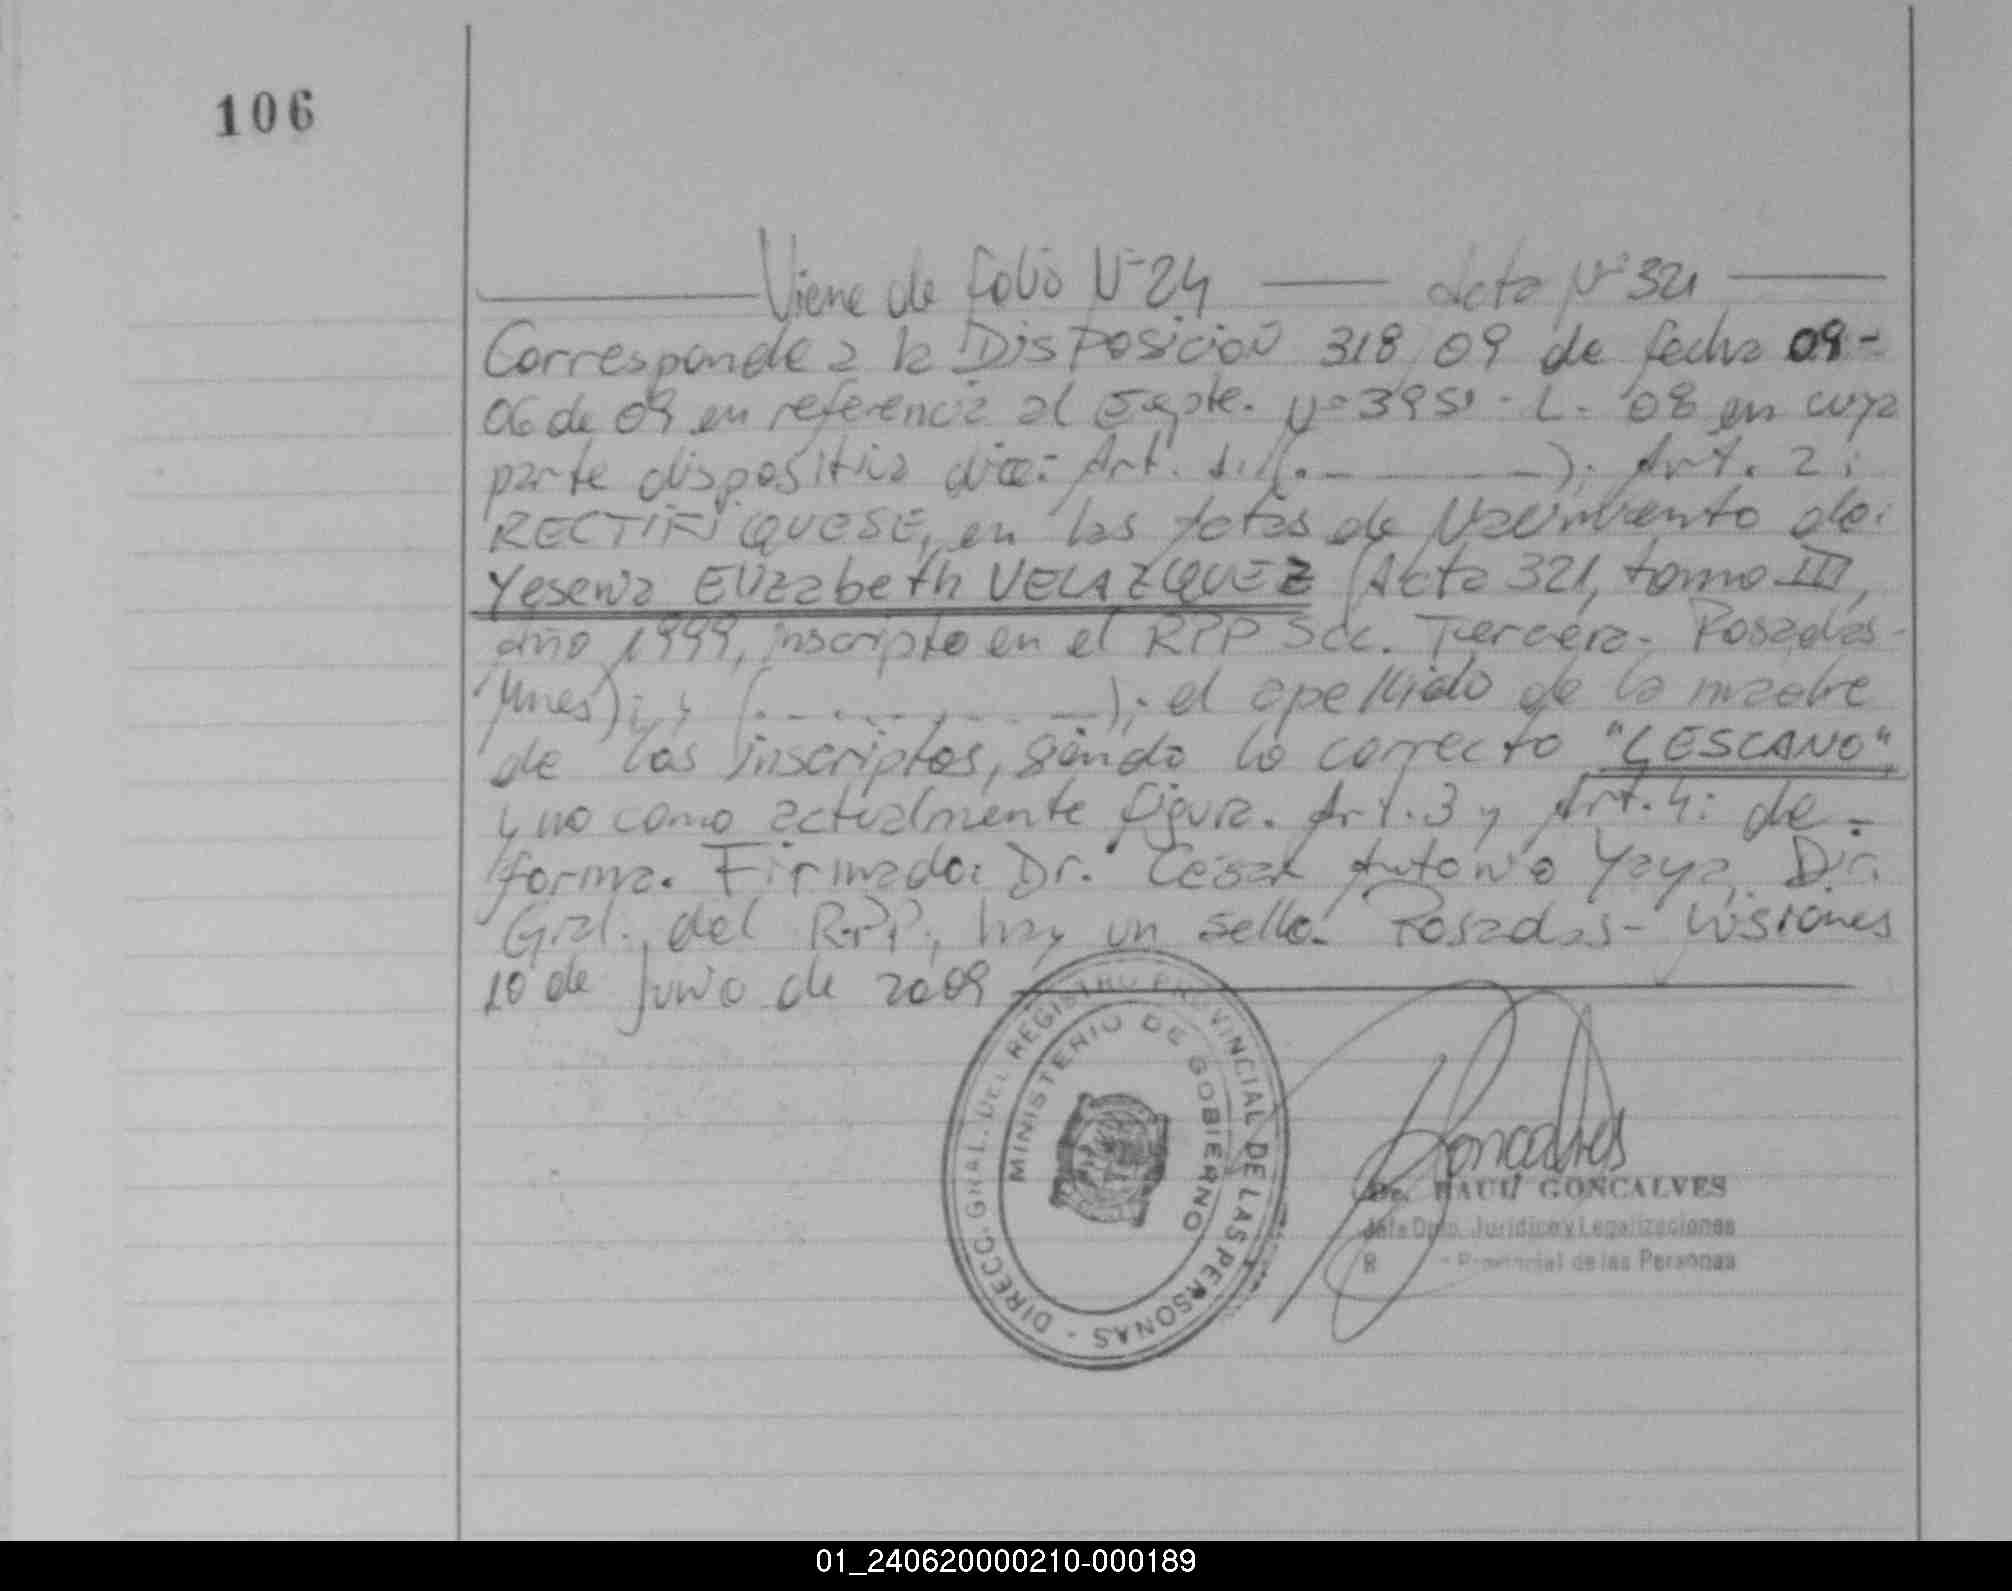 106
Viene de folio N° 24 — Acta N° 321
Corresponde a la Disposición 318/09 de fecha 09-
06 de 09 en referencia al Expte. N° 395 - L - 08 en cuya
parte dispositiva dice: Art. 1: (. - - - - - -); Art. 2:
RECTIFIQUESE, en las Actas de Nacimiento de:
Yesenia Elizabeth VELAZQUEZ (Acta 321, tomo III,
año 1999, inscripto en el RPP Scc. Tercera - Posadas -
Mnes); y (. - - - - - -); el apellido de la madre
de los inscriptos, siendo lo correcto "LESCANO",
y no como actualmente figura. Art. 3 y Art. 4: de -
forma. Firmado: Dr. César Antonio Yaya, Dir.
Gral. del R.P.P., hay un sello. Posadas - Misiones
10 de Junio de 2009
DIRECC. GRAL. DEL REGISTRO PROVINCIAL DE LAS PERSONAS -
MINISTERIO DE GOBIERNO
Goncalves
Dr. RAUL GONCALVES
Jefe Dpto. Jurídico y Legalizaciones
R Provincial de las Personas
01_240620000210-000189